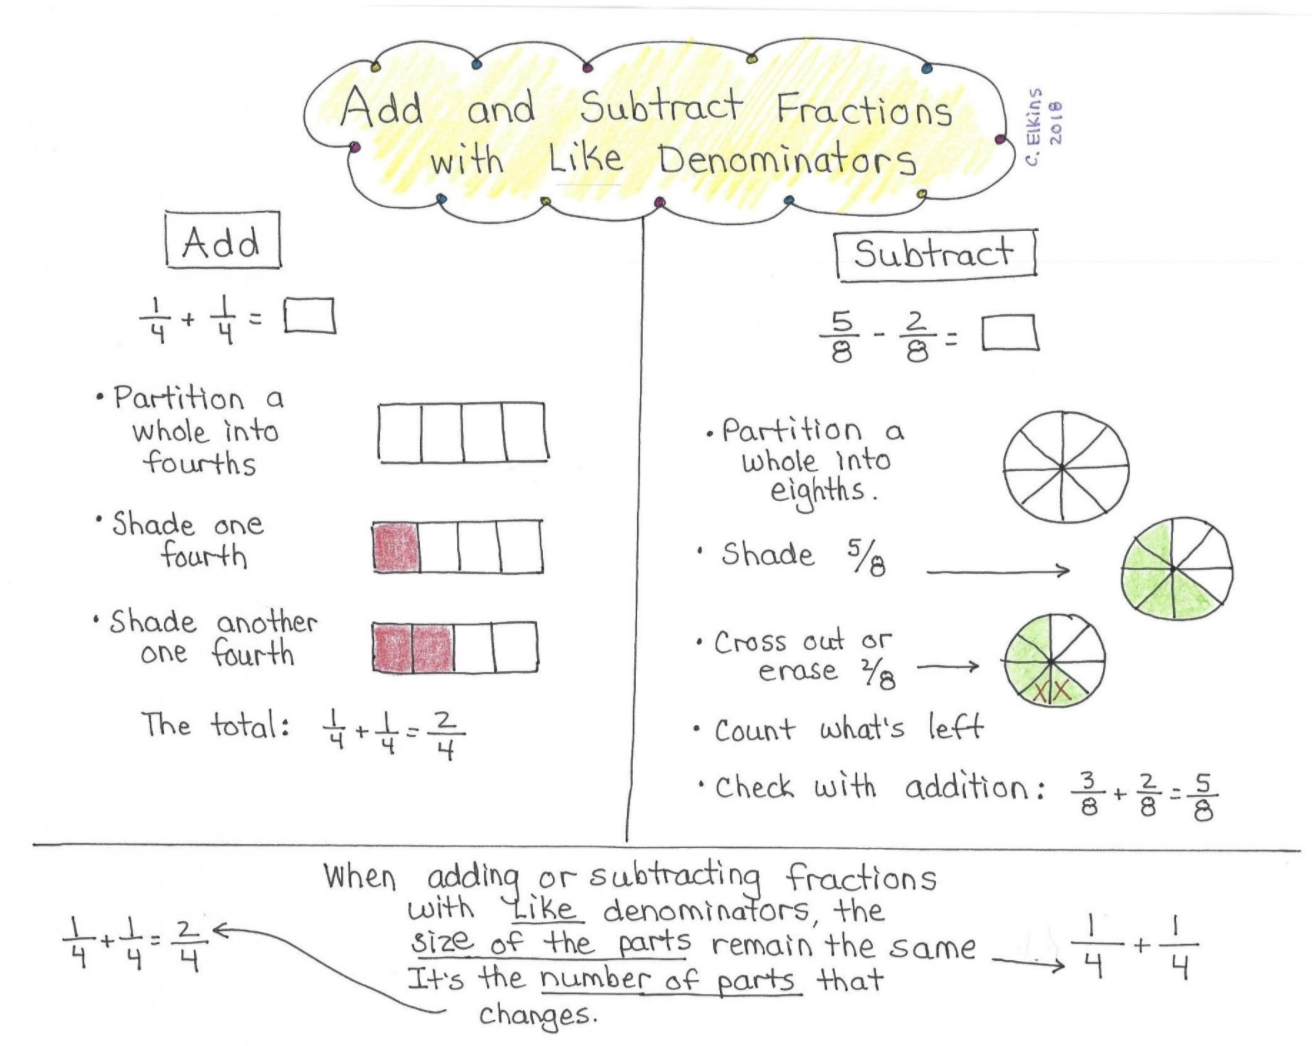 Add and Subtract Fractions
with Like Denominators
C. Elkins
2018
Add
1/4 + 1/4 =
• Partition a
whole into
fourths
• Shade one
fourth
• Shade another
one fourth
The total: 1/4 + 1/4 = 2/4
Subtract
5/8 - 2/8 =
• Partition a
whole into
eighths.
• Shade 5/8
• Cross out or
erase 2/8
X X
• Count what's left
• Check with addition: 3/8 + 2/8 = 5/8
When adding or subtracting fractions
with Like denominators, the
size of the parts remain the same
It's the number of parts that
changes.
1/4 + 1/4 = 2/4
1/4 + 1/4